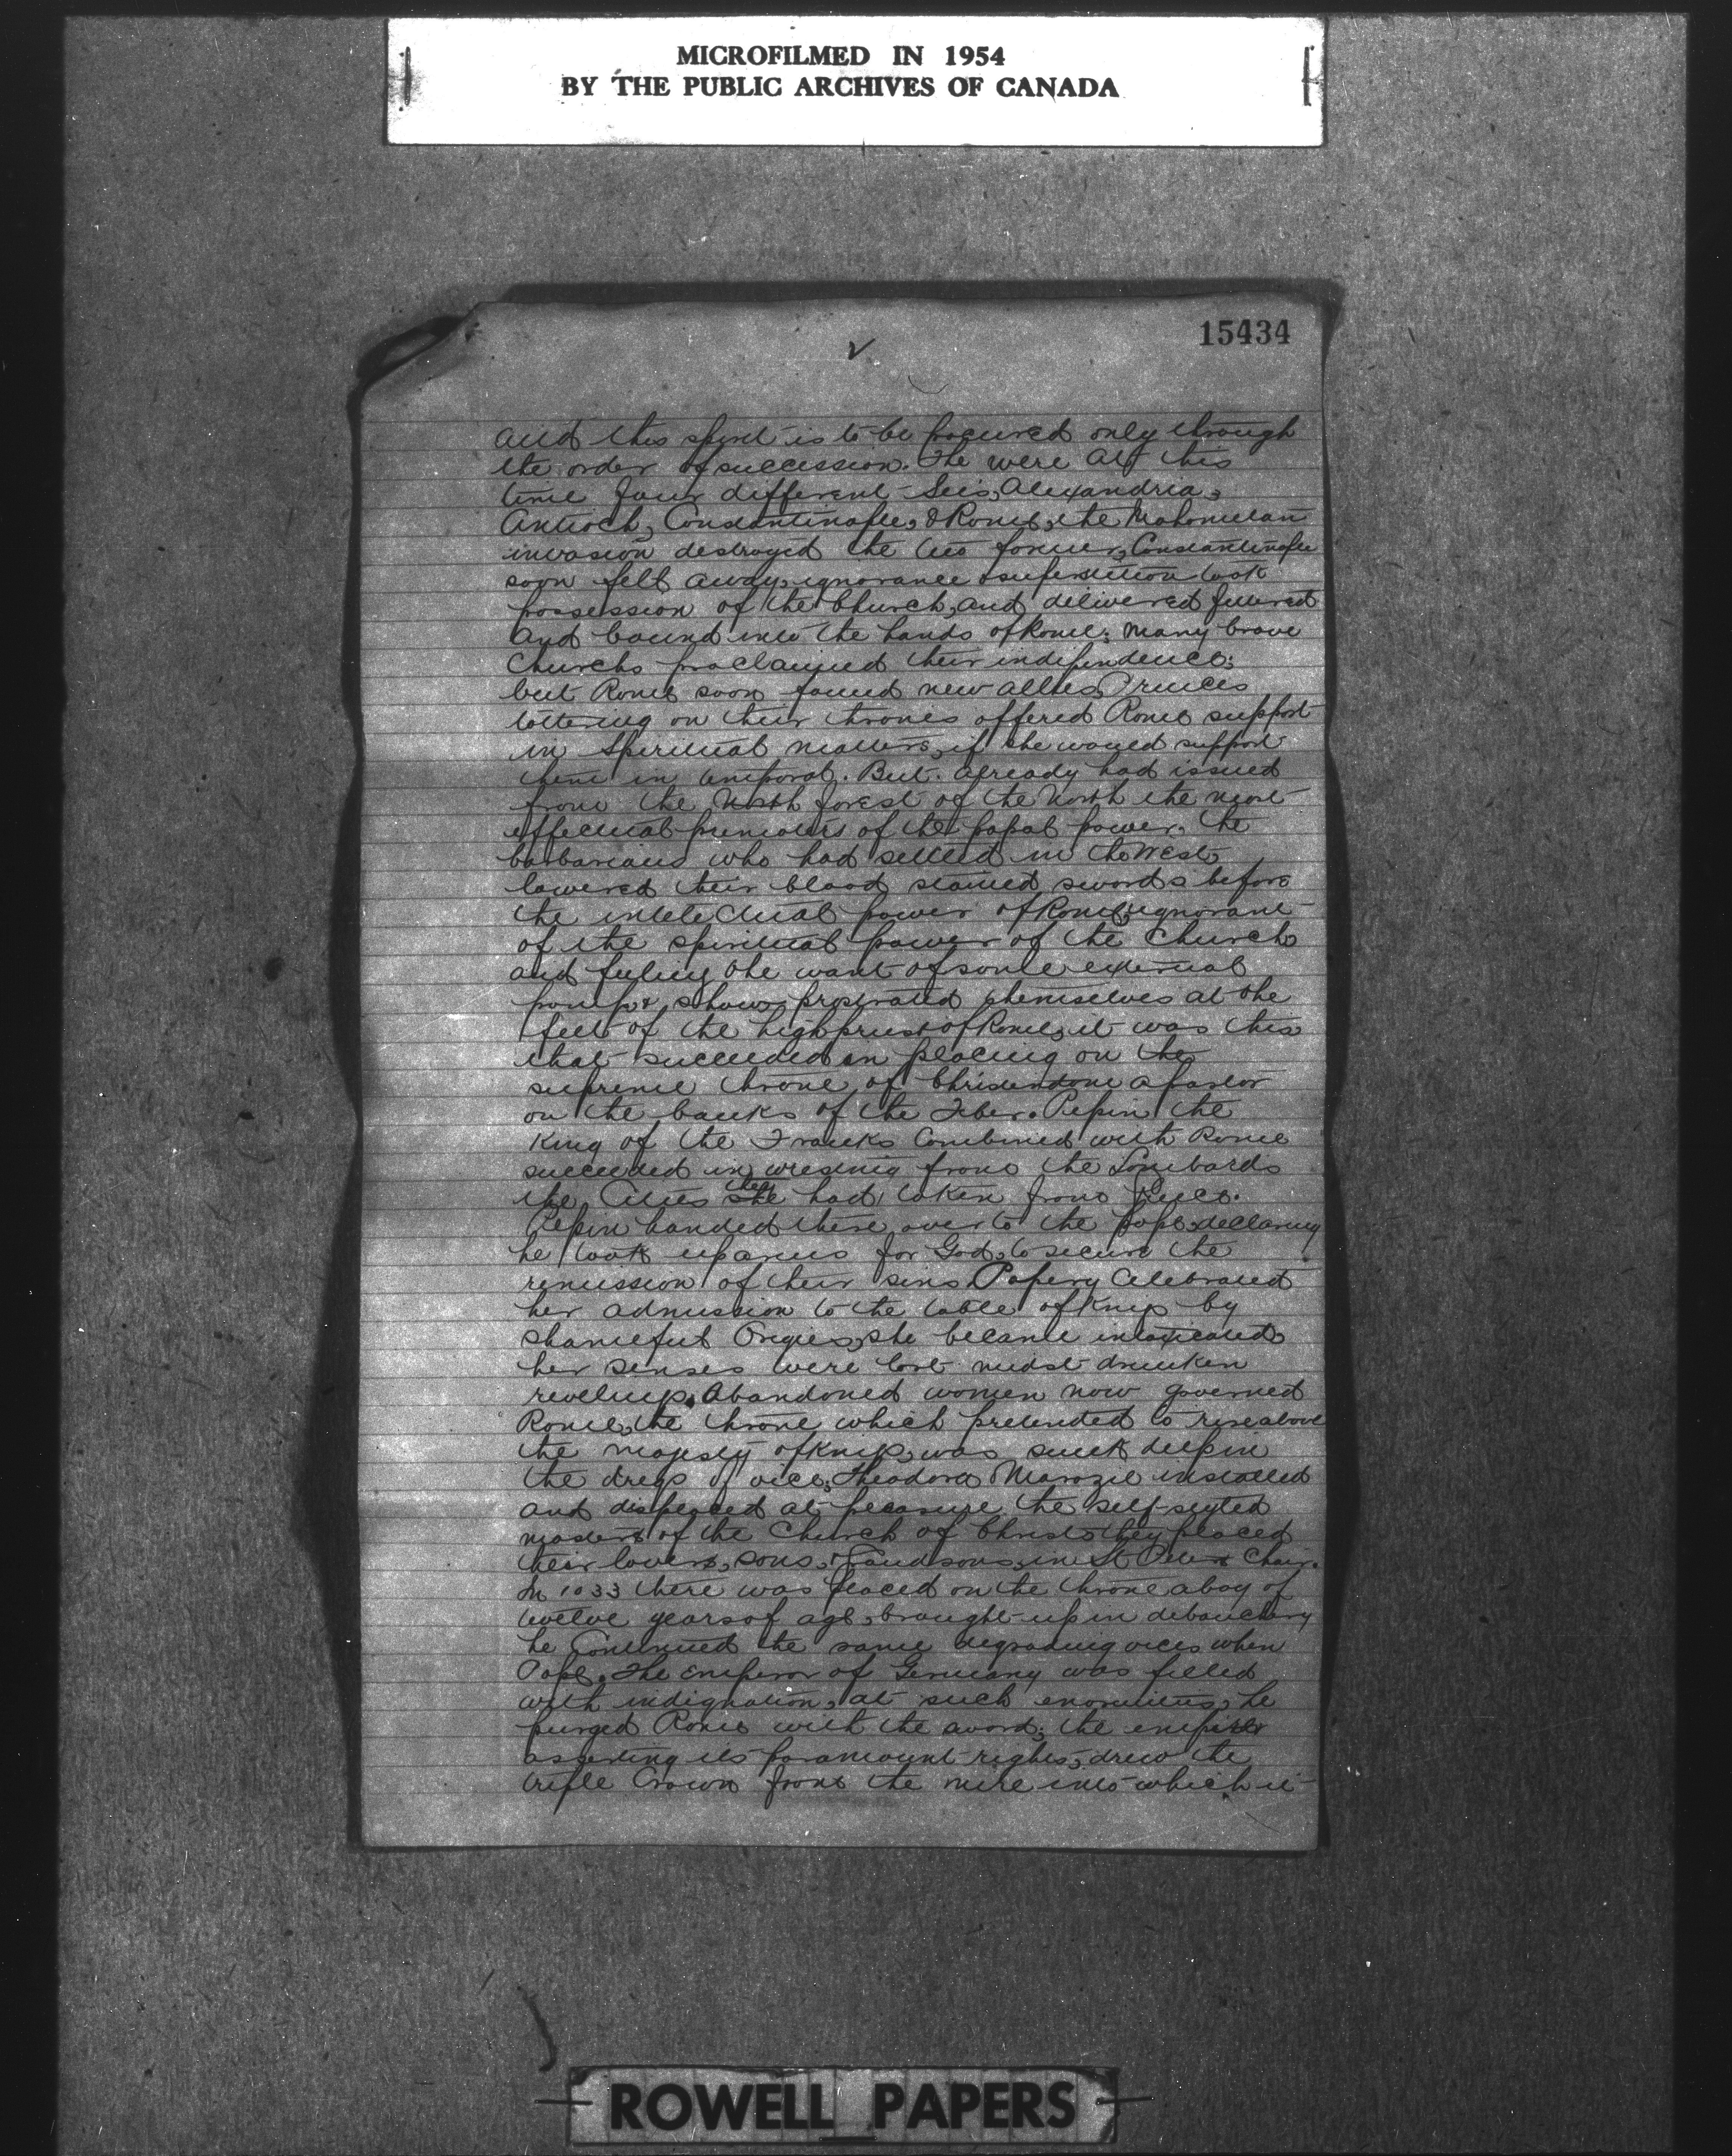 MICROFILMED IN 1954
BY THE PUBLIC ARCHIVES OF CANADA
15434
2
and this spirit is to be procured only through
the order of succession. The were at this
time four different Sees, Alexandria,
Antioch, Constantinople, & Rome, the Mahometan
invasion destroyed the two former, Constantinople
soon fell away, ignorance & superstition took
possession of the Church, and delivered fettered
and bound into the hands of Rome; Many brave
Churchs proclaimed their indipendence;
but Rome soon found new allies, Princes
tottering on their thrones offered Rome support
in Spiritual matters, if she would support
them in temporal. But already had issued
from the North forest of the North the most
effectual promoters of the papal power. The
barbarians who had settled in the West,
lowered their blood stained swords before
the intelectual power of Rome, ignorant
of the spiritual power of the Church
and feeling the want of some external
pomp & show, prostrated themselves at the
feet of the high priest of Rome, it was this
that succeeded in placing on the
supreme throne of Christendom a pastor
on the banks of the Tiber. Pepin the
King of the Franks Combined with Rome
succeeded in wresting from the Lombards
the Cities they had taken from
Pepin handed these over to the pope, declaring
he took up arms for God, to secure the
remission of their sins. Popery Celebrated
her admission to the table of Kings by
shameful Orgies, she became intoxicated,
her senses were lost midst drunken
revelings. Abandoned women now governed
Rome, the throne which pretended to rise above
the majesty of Kings, was sunk deep in
the dregs of vice; Theodora Marozie installed
and at pleasure the self-styled
masters of the Church of Christ, they placed
their lovers, sons, & Grandsons, in St Peters Chair.
In 1033 there was placed on the throne a boy of
twelve years of age, brought up in debauchery
he Continued the same degrading vices when
Pope. The emperor of Germany was filled
with indignation, at such enormities, he
purged Rome with the sword; the empire
asserting its paramount rights, drew the
triple Crown from the mire into which it
ROWELL PAPERS